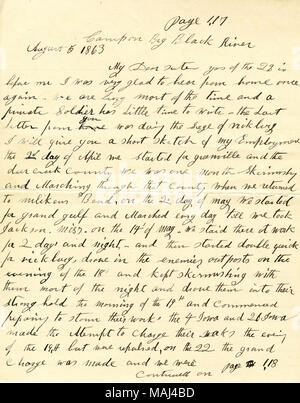 Page 417
Camp on Big Black River
August 5 1863
My Dear sister yos of the 23 is
before me I was very glad to hear from home once
again - we are busy most of the time and a
private Soldier has little time to write - the last
letter from home was during the Sege of vicksburg
I will give you a short Sketch of my Employment
the 2 day of April we started for greenville and the
deer creek County we was one month Skirmishing
and Marching through that county when we returned
to milikens Bend, on the 2 day of may we started
for grand gulf and Marched evry day till we took
Jackson. Miss. on the 14 of may. we staid there at wak
for 2 days and night - and then started double quick
for vicksburg, drove in the enemies outposts on the
evening of the 18 and kept skirmishing with
them most of the night and drove them into their
strong hold the morning of the 19th and Commenced
prepairing to storm their works the 4 Iowa and 26 Iowa
made the Atempt to Charge their works the evning
of the 19th but were repulsed, on the 22 the grand
Charge was made and we were
Continued on page 418
alamy
MAJ4BD